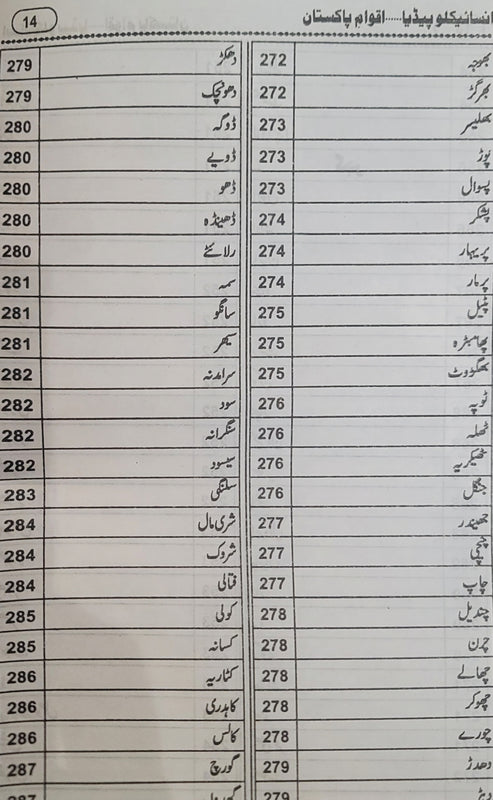 انسائیکلو پیڈیا......اقوام پاکستان 14
بھوجہ 272
بھرگڑ 272
بھلیسر 273
پوڑ 273
پسوال 273
پشکر 274
پریہار 274
پرمار 274
پٹیل 275
پھامبڑہ 275
بھگڑوٹ 275
ٹوپہ 276
ٹھلہ 276
ٹھیکریہ 276
جنگل 276
چھیندر 277
چچی 277
چاپ 277
چندیل 278
چرن 278
چھالے 278
چھوکر 278
چورے 278
دھدڑ 279
279
دھکڑ 279
دھونچک 279
ڈوگہ 280
ڈویے 280
ڈھو 280
ڈھینڈہ 280
رلائے 280
سمہ 281
سانگو 281
سیکھر 281
سرامدنہ 282
سود 282
سنگرانہ 282
سیسود 282
سلنگی 283
شری مال 284
شروک 284
فتالی 284
کولی 285
کسانہ 285
کٹاریہ 286
کاہدری 286
کالس 286
گورچ 287
287